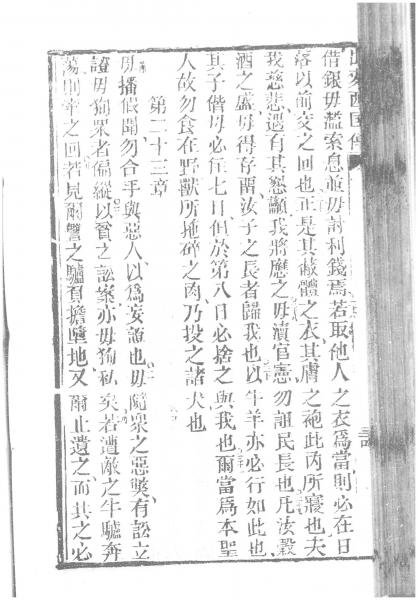 出麥西國傳
借銀毋濫索息並毋討利錢焉若取他人之衣爲當則必在日
落以前交之回也正是其蔽體之衣其膚之袍此丙所寢也夫
我慈悲遇有其懇籲我將應之毋瀆官憲勿詛民長也凡汝穀
酒之盛毋得存畱汝子之長者歸我也以牛羊亦必行如此也
其子偕母必住七日但於第八日必捨之與我也爾當爲本聖
人故勿食在野獸所拖碎之肉乃投之諸犬也
第二十三章
毋播假聞勿合手與惡人以爲妄證也毋隨衆之惡獘有訟立
證毋狥眾者偏縱以貧之訟案亦毋狥私矣若遭敵之牛驢奔
蕩則牽之回若見爾讐之驢負擔墮地又爾止遺之而共之必